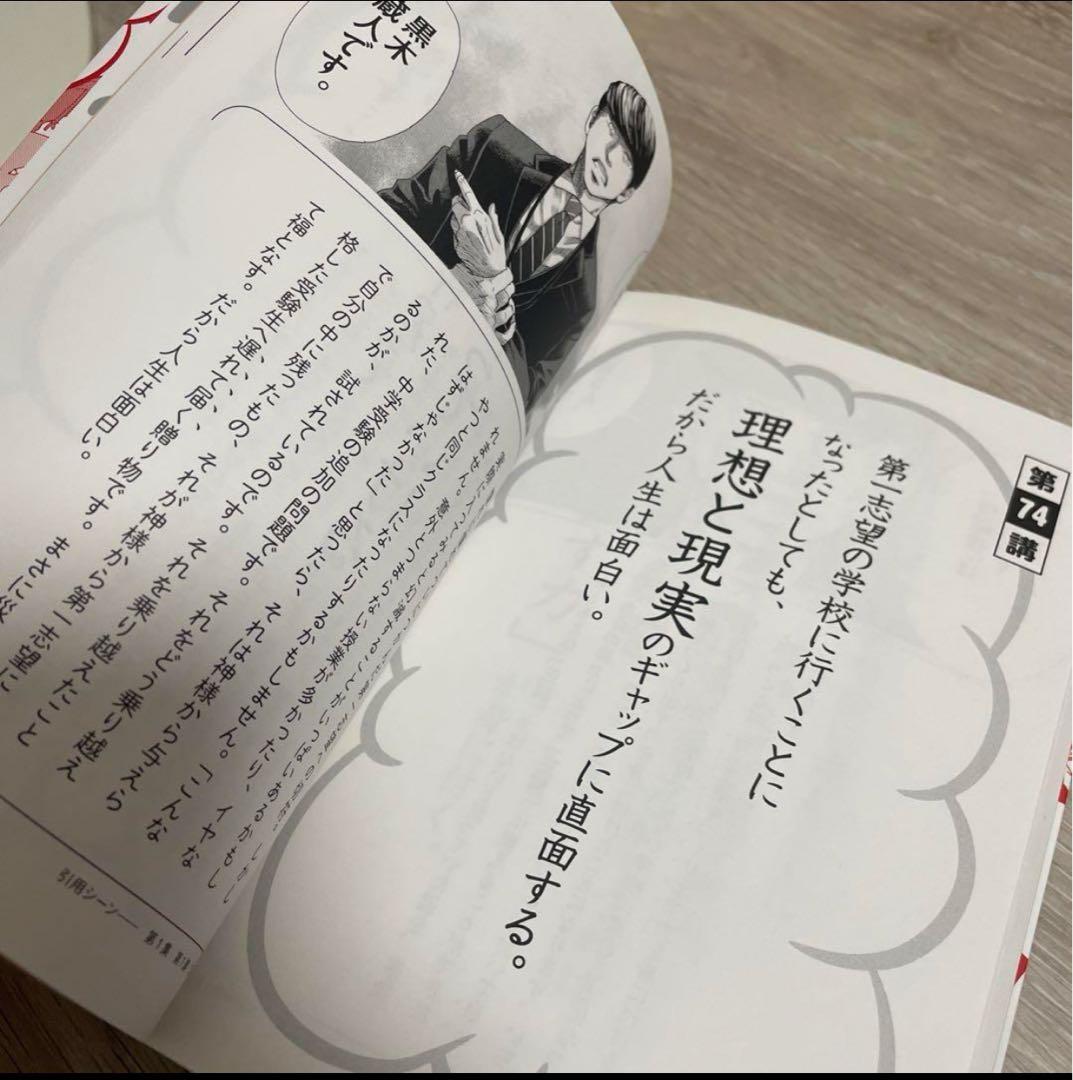 第74講
第一志望の学校に行くことに
なったとしても、
理想と現実のギャップに直面する。
だから人生は面白い。
黒木
蔵人です。
れません。意外とつまらない授業が多かったり、イヤな
やつと同じクラスになったりするかもしれません。「こんな
はずじゃなかった」と思ったら、それは神様から与えら
れた、中学受験の追加の問題です。それをどう乗り越え
るのかが、試されているのです。それを乗り越えたこと
で自分の中に残ったもの、それが神様から第一志望に
格した受験生へ遅れて届く贈り物です。まさに災
て福となす。だから人生は面白い。
引用シーン
第1集